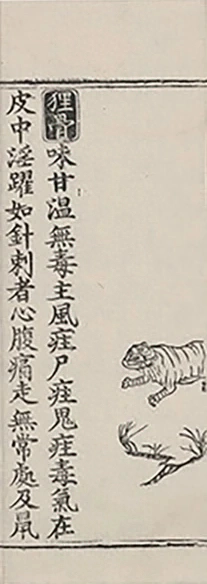 狸骨味甘溫無毒主風疰尸疰鬼疰毒氣在
皮中淫躍如針刺者心腹痛走無常處及鼠